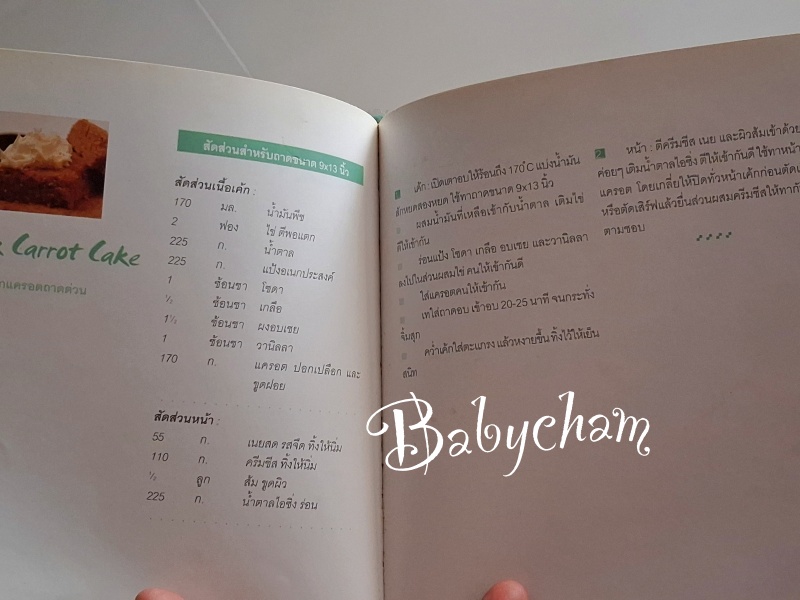 Carrot Cake
แครอตถาดด่วน
สัดส่วนสำหรับถาดขนาด 9x13 นิ้ว
สัดส่วนเนื้อเค้ก :
170 มล. น้ำมันพืช
2 ฟอง ไข่ ตีพอแตก
225 ก. น้ำตาล
225 ก. แป้งอเนกประสงค์
1 ช้อนชา โซดา
½ ช้อนชา เกลือ
1½ ช้อนชา ผงอบเชย
1 ช้อนชา วานิลลา
170 ก. แครอต ปอกเปลือก และ
ขูดฝอย
สัดส่วนหน้า :
55 ก. เนยสด รสจืด ทิ้งให้นิ่ม
110 ก. ครีมชีส ทิ้งให้นิ่ม
½ ลูก ส้ม ขูดผิว
225 ก. น้ำตาลไอซิ่ง ร่อน
1 เค้ก : เปิดเตาอบให้ร้อนถึง 170°C แบ่งน้ำมัน
สักหยดสองหยด ใช้ทาถาดขนาด 9x13 นิ้ว
ผสมน้ำมันที่เหลือเข้ากับน้ำตาล เติมไข่
ตีให้เข้ากัน
ร่อนแป้ง โซดา เกลือ อบเชย และวานิลลา
ลงไปในส่วนผสมไข่ คนให้เข้ากันดี
ใส่แครอตคนให้เข้ากัน
เทใส่ถาดอบ เข้าอบ 20-25 นาที จนกระทั่ง
ขึ้นสุก
คว่ำเค้กใส่ตะแกรง แล้วหงายขึ้น ทิ้งไว้ให้เย็น
สนิท
2 หน้า : ตีครีมชีส เนย และผิวส้มเข้าด้วย
ค่อยๆ เติมน้ำตาลไอซิ่ง ตีให้เข้ากันดี ใช้ทาหน้า
แครอต โดยเกลี่ยให้ปิดทั่วหน้าเค้กก่อนตัด
หรือตัดเสิร์ฟแล้วยื่นส่วนผสมครีมชีสให้ทา
ตามชอบ
Babycham